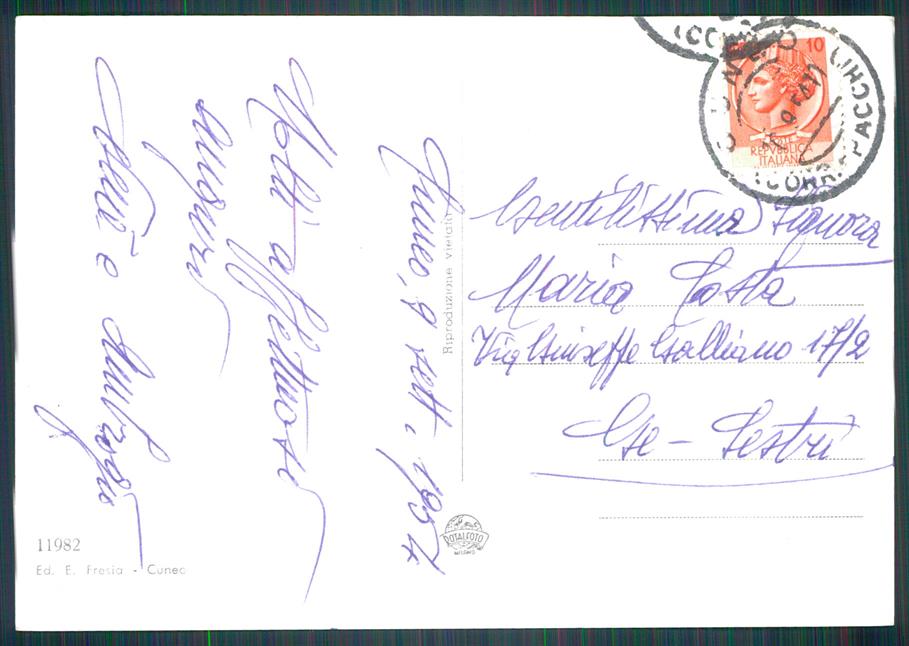 Cuneo, 9 sett. 1954
Molti affettuosi
auguri
e Ambrogio
11982
Ed. E. Fresia - Cuneo
Riproduzione vietata
ROTALFOTO
MILANO
10
POSTE
REPVBBLICA
ITALIANA
CUNEO
(CORR. PACCHI)
Gentilissima Signora
Maria Costa
Via Giuseppe Galliano 17/2
Ge - Sestri